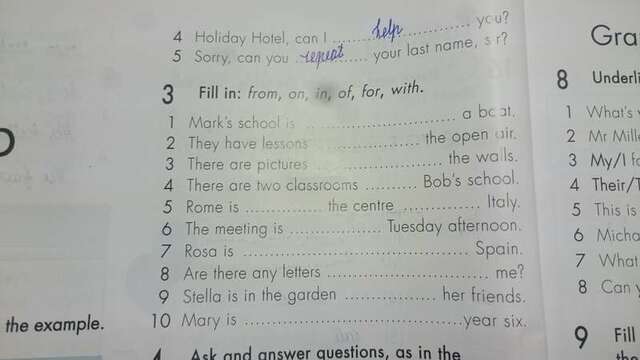 4 Holiday Hotel, can I ............help............ you?
5 Sorry, can you ..repeat...... your last name, sir?
3 Fill in: from, on, in, of, for, with.
1 Mark's school is ............................ a boat.
2 They have lessons ............................ the open air.
3 There are pictures ............................ the walls.
4 There are two classrooms .......... Bob's school.
5 Rome is ............... the centre ........... Italy.
6 The meeting is .............. Tuesday afternoon.
7 Rosa is .................................................. Spain.
8 Are there any letters ................................ me?
9 Stella is in the garden .................. her friends.
10 Mary is ...........................................year six.
4 Ask and answer questions, as in the
the example.
Gra
8 Underli
1 What's
2 Mr Mill
3 My/I
4 Their/
5 This is
6 Micha
7 What
8 Can
9 Fill
the